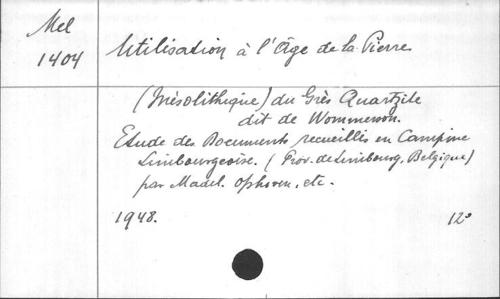 Mel
1404
Utilisation à l'Âge de la Pierre
(Mésolithique) du Grès Quartzite
dit de Wommerson.
Etude des Documents recueillis en Campine
Limbourgeoise. (Prov. de Limbourg, Belgique)
par Madel. Ophoven, etc.
1948.
12°